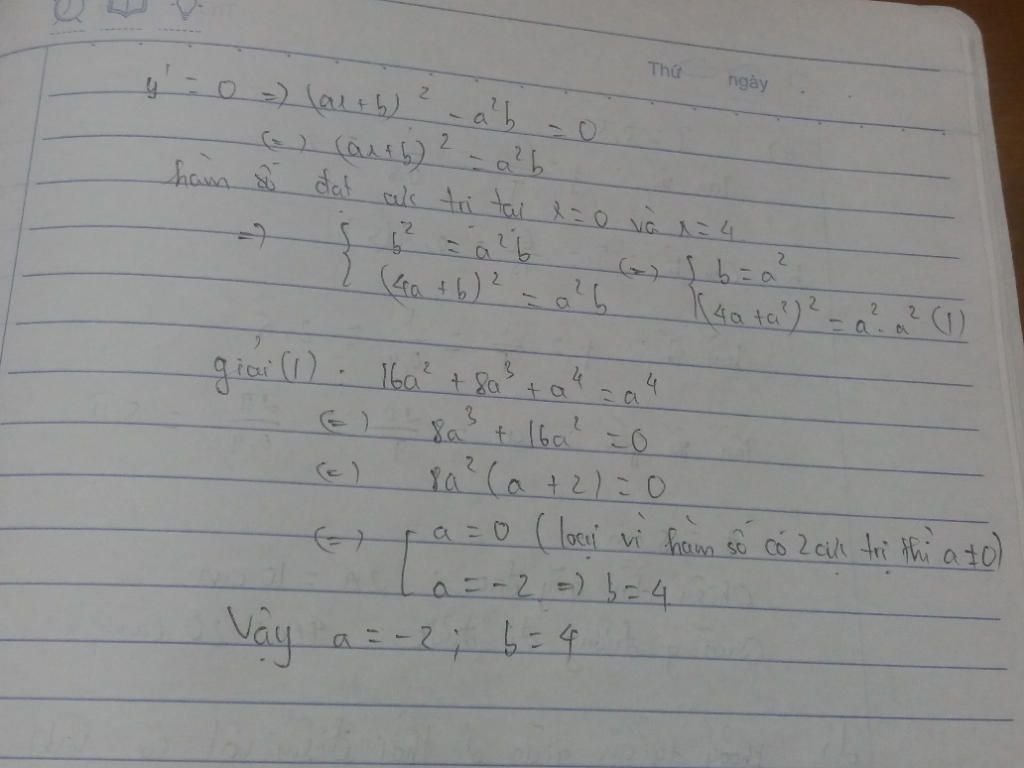 Thứ ngày
y' = 0 => (ax+b)² - a²b = 0
(=) (ax+b)² = a²b
hàm số đạt cực trị tại x=0 và x=4
=> { b² = a²b (=) { b = a²
(4a+b)² = a²b (4a+a²)² = a².a² (1)
giải (1): 16a² + 8a³ + a⁴ = a⁴
(=) 8a³ + 16a² = 0
(=) 8a²(a+2) = 0
(=) [ a = 0 (loại vì hàm số có 2 cực trị thì a≠0)
a = -2 => b = 4
Vậy a = -2; b = 4